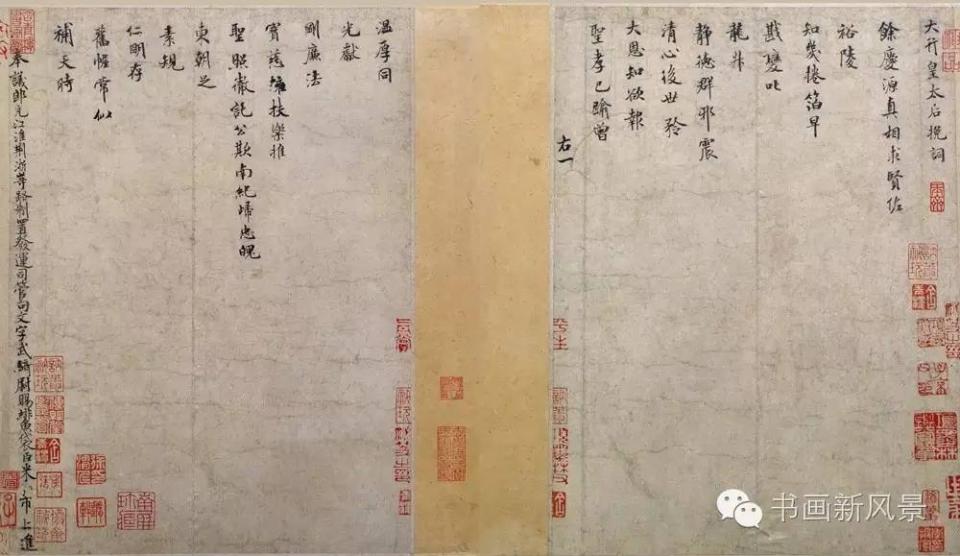 大行皇太后挽詞
餘慶源真相求賢佐
裕陵
知幾捲箔早
戡變叱
龍升
靜德群邪震
清心後世矜
大恩知欲報
聖孝已踰曾
右一
温厚同
光獻
剛廉法
寶慈擁扶樂推
聖照徹託公欺南紀歸忠魄
東朝足
素規
仁明存
舊幄常似
補天時
奉議郎充江淮荆浙等路制置發運司管句文字武騎尉賜緋魚袋臣米芾上進
书画新风景